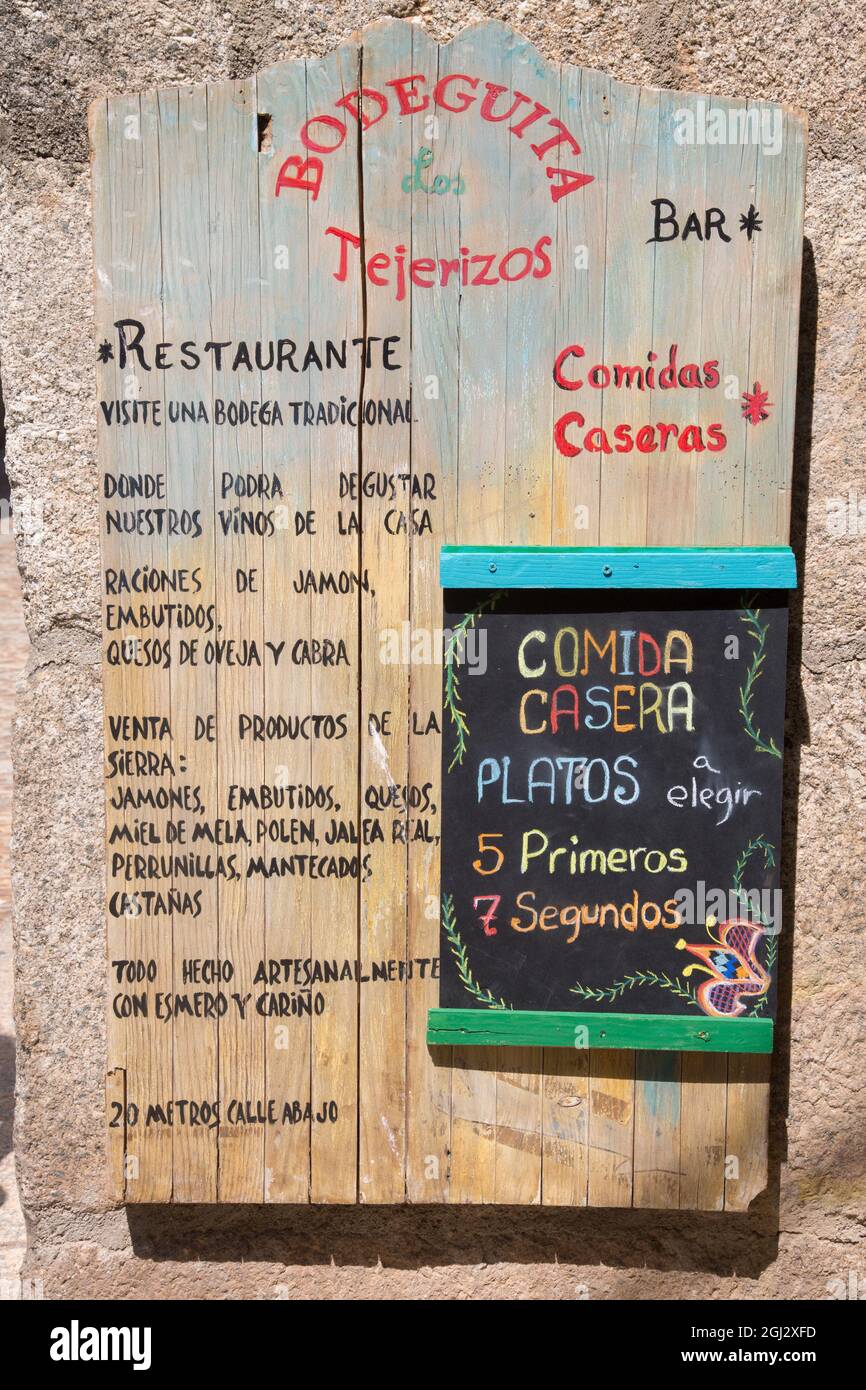 BODEGUITA
Los
Tejerizos
BAR*
*RESTAURANTE
VISITE UNA BODEGA TRADICIONAL
Comidas
Caseras *
DONDE PODRA DEGUSTAR
NUESTROS VINOS DE LA CASA
RACIONES DE JAMON,
EMBUTIDOS,
QUESOS DE OVEJA Y CABRA
VENTA DE PRODUCTOS DE LA
SIERRA:
JAMONES, EMBUTIDOS, QUESOS,
MIEL DE MELA, POLEN, JALEA REAL,
PERRUNILLAS, MANTECADOS
CASTAÑAS
TODO HECHO ARTESANALMENTE
CON ESMERO Y CARIÑO
20 METROS CALLE ABAJO
COMIDA
CASERA
PLATOS a elegir
5 Primeros
7 Segundos
alamy
Image ID: 2GJ2XFD
www.alamy.com